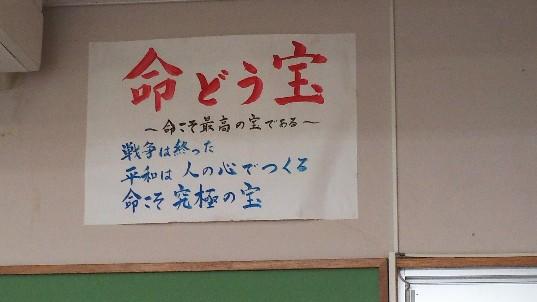 命どう宝
～命こそ最高の宝である～
戦争は終った
平和は人の心でつくる
命こそ究極の宝